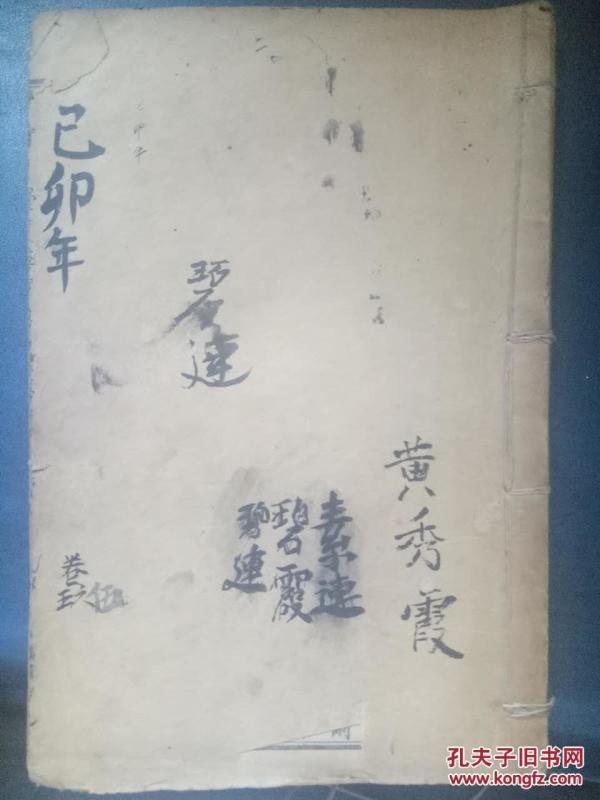 己卯年
碧連
黄秀霞
素連
碧霞
碧連
卷
伍
孔夫子旧书网
www.kongfz.com